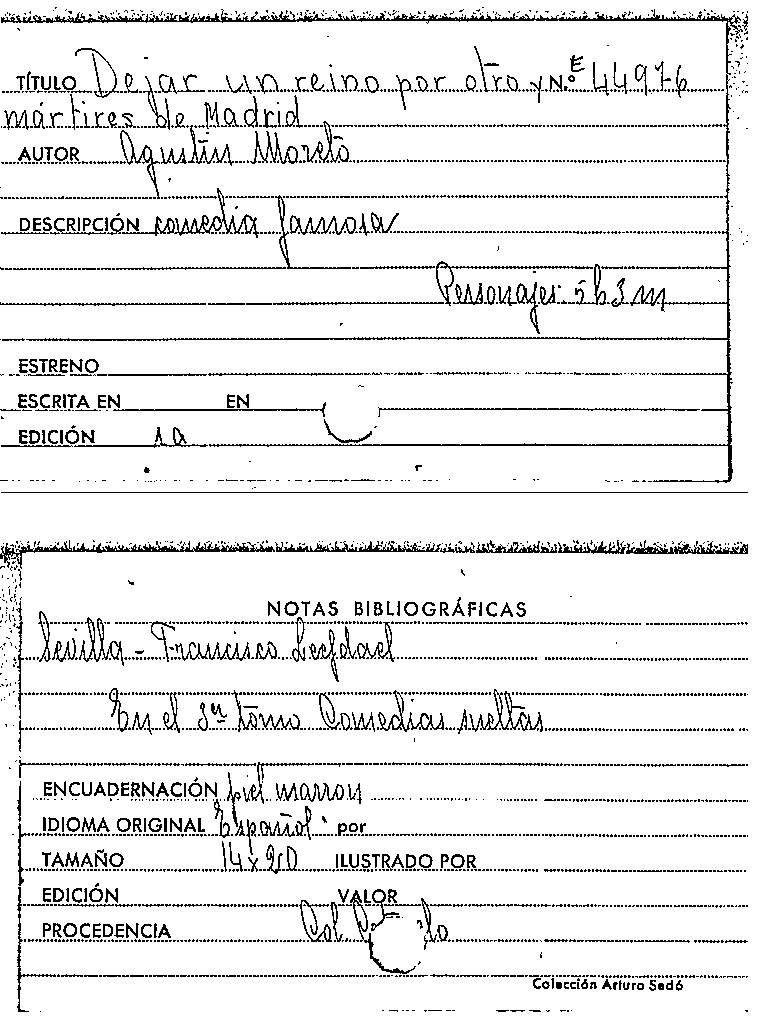 TÍTULO Dejar un reino por otro y N.º E 44976
mártires de Madrid
AUTOR Agustín Moreto
DESCRIPCIÓN comedia famosa
Personajes 5 h 3 m
ESTRENO
ESCRITA EN EN
EDICIÓN 1a
NOTAS BIBLIOGRÁFICAS
Sevilla - Francisco Leefdael
En el 3er tomo Comedias sueltas
ENCUADERNACIÓN piel marron
IDIOMA ORIGINAL Español por
TAMAÑO 14x20 ILUSTRADO POR
EDICIÓN VALOR
PROCEDENCIA Col.
Colección Arturo Sedó